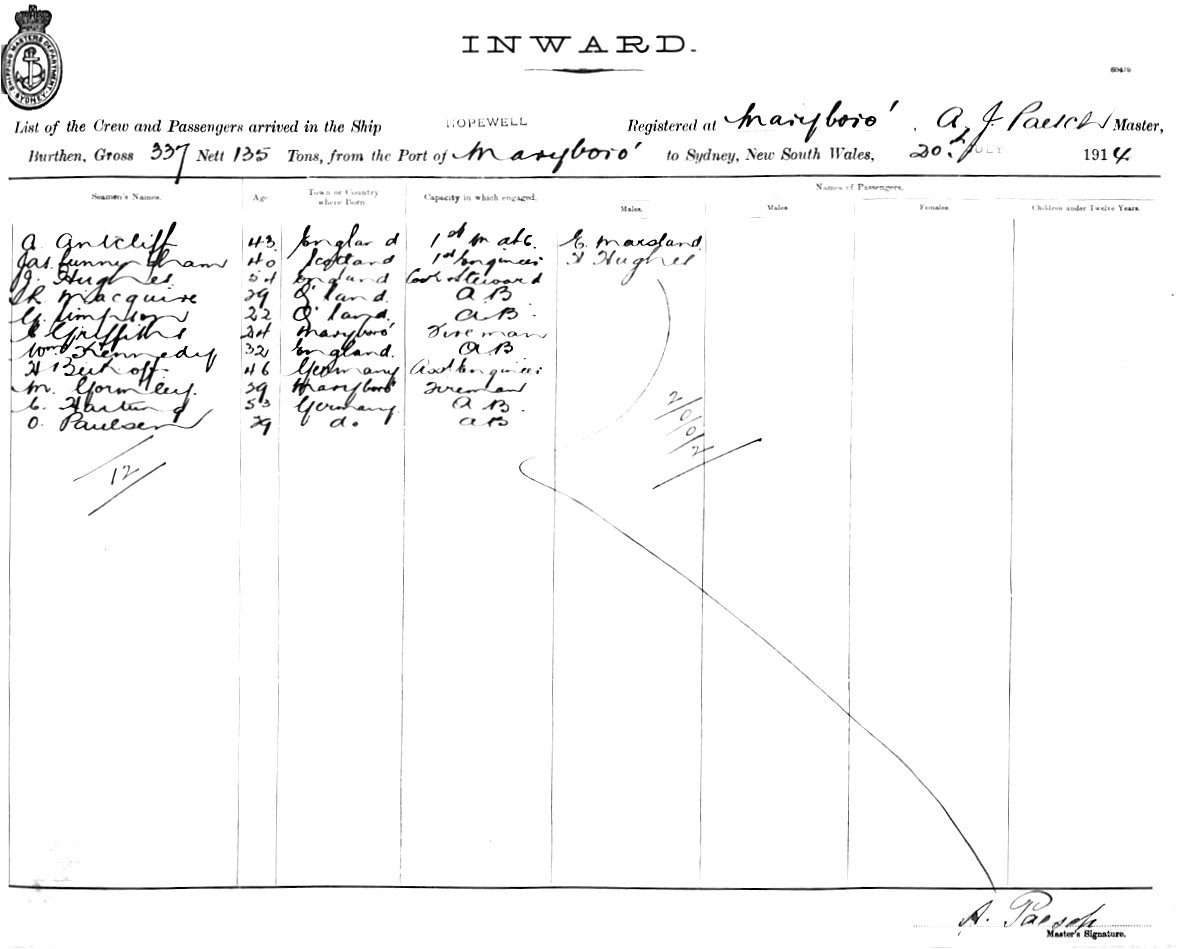 SHIPPING MASTERS DEPARTMENT SYDNEY
INWARD.
List of the Crew and Passengers arrived in the Ship HOPEWELL Registered at Maryboro' . A. J. Paesch Master,
Burthen, Gross 337 Nett 135 Tons, from the Port of Maryboro' to Sydney, New South Wales, 20th JULY 1914
Names of Passengers.
Seamen's Names. Age Town or Country where Born. Capacity in which engaged. Males. Males. Females. Children under Twelve Years.
A. Antcliff 43 England 1st Mate. E. Marsland
Jas. Cunningham 40 Scotland 1st Engineer H Hughes
J. Hughes. 54 England Cook & Steward
Macquire 29 Q'land. AB
G. Simpson 22 Q'land. AB.
E Griffiths 24 Maryboro' Fireman
Wm Kennedy 32 England. AB
H 46 Germany Asst Engineer
M. Gormley. 29 Maryboro' Fireman
C. Hartung 53 Germany. AB.
O. Paulsen 29 do. AB
2/0/0/2
12
A. Paesch
Master's Signature.